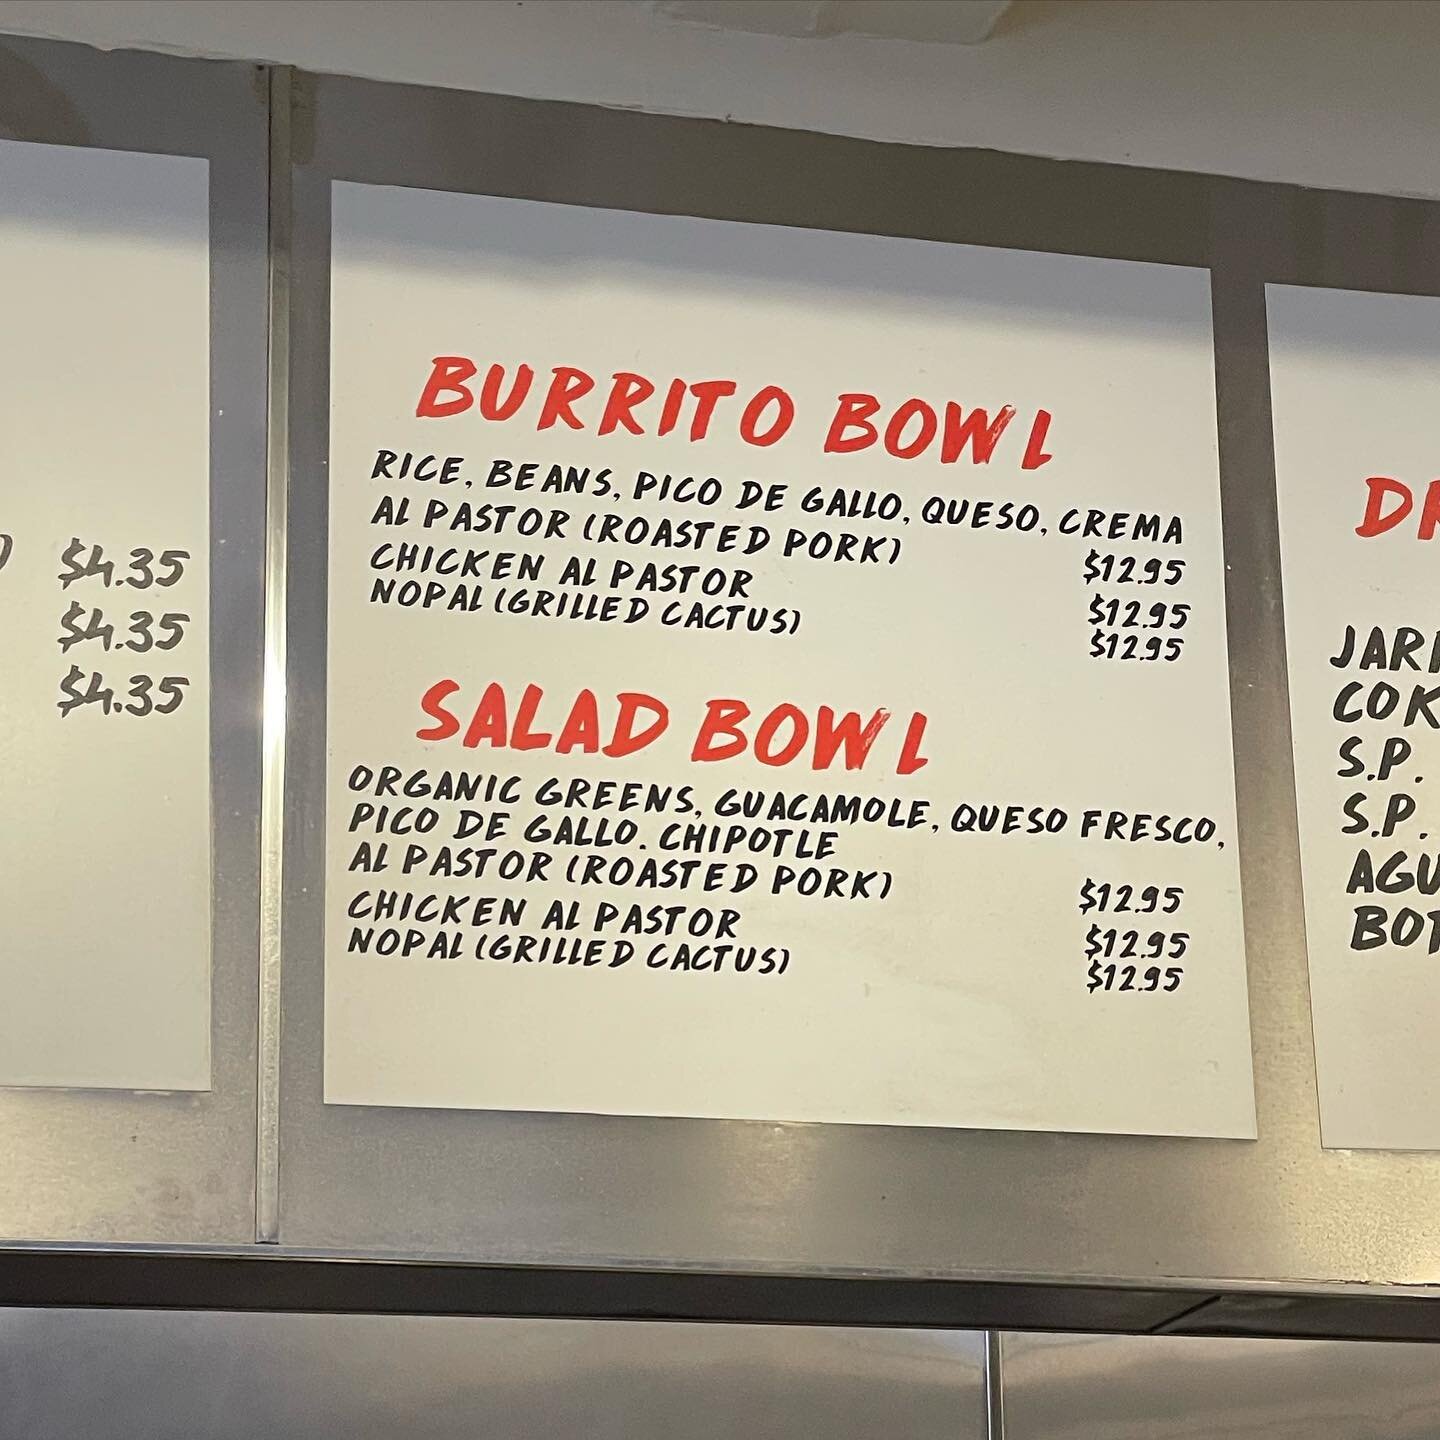 $4.35
$4.35
$4.35
BURRITO BOWL
RICE, BEANS, PICO DE GALLO, QUESO, CREMA
AL PASTOR (ROASTED PORK) $12.95
CHICKEN AL PASTOR $12.95
NOPAL (GRILLED CACTUS) $12.95
SALAD BOWL
ORGANIC GREENS, GUACAMOLE, QUESO FRESCO,
PICO DE GALLO. CHIPOTLE
AL PASTOR (ROASTED PORK) $12.95
CHICKEN AL PASTOR $12.95
NOPAL (GRILLED CACTUS) $12.95
S.P.
S.P.